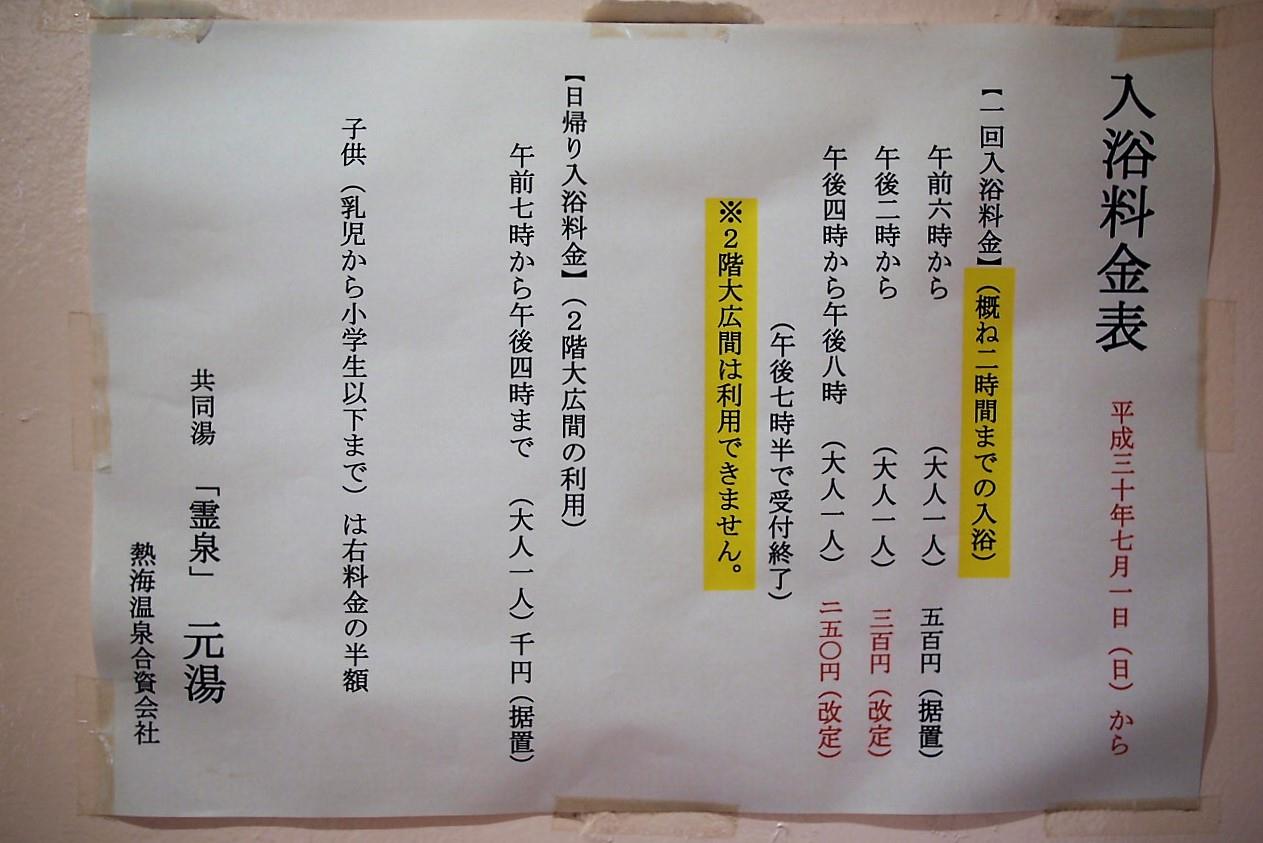 入浴料金表 平成三十年七月一日（日）から
【一回入浴料金】（概ね二時間までの入浴）
午前六時から （大人一人） 五百円（据置）
午後二時から （大人一人） 三百円（改定）
午後四時から午後八時 （大人一人） 二五〇円（改定）
（午後七時半で受付終了）
※２階大広間は利用できません。
【日帰り入浴料金】（２階大広間の利用）
午前七時から午後四時まで （大人一人）千円（据置）
子供（乳児から小学生以下まで）は右料金の半額
共同湯 「霊泉」 元湯
熱海温泉合資会社